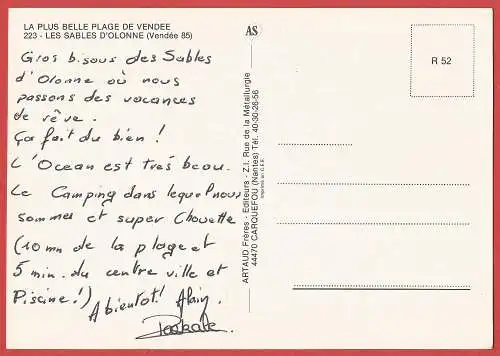 LA PLUS BELLE PLAGE DE VENDEE
223 - LES SABLES D'OLONNE (Vendée 85)
Gros bisous des Sables
d'Olonne où nous
passons des vacances
de rêve.
ça fait du bien !
L'Ocean est très beau.
Le Camping dans lequel nous
sommes et super chouette
(10 mn de la plage et
5 min. du centre ville et
Piscine !)
A bientot ! Alain
AS
R 52
ARTAUD Frères - Editeurs - Z.I. Rue de la Métallurgie
44470 CARQUEFOU (Nantes) Tél. 40-30-26-56